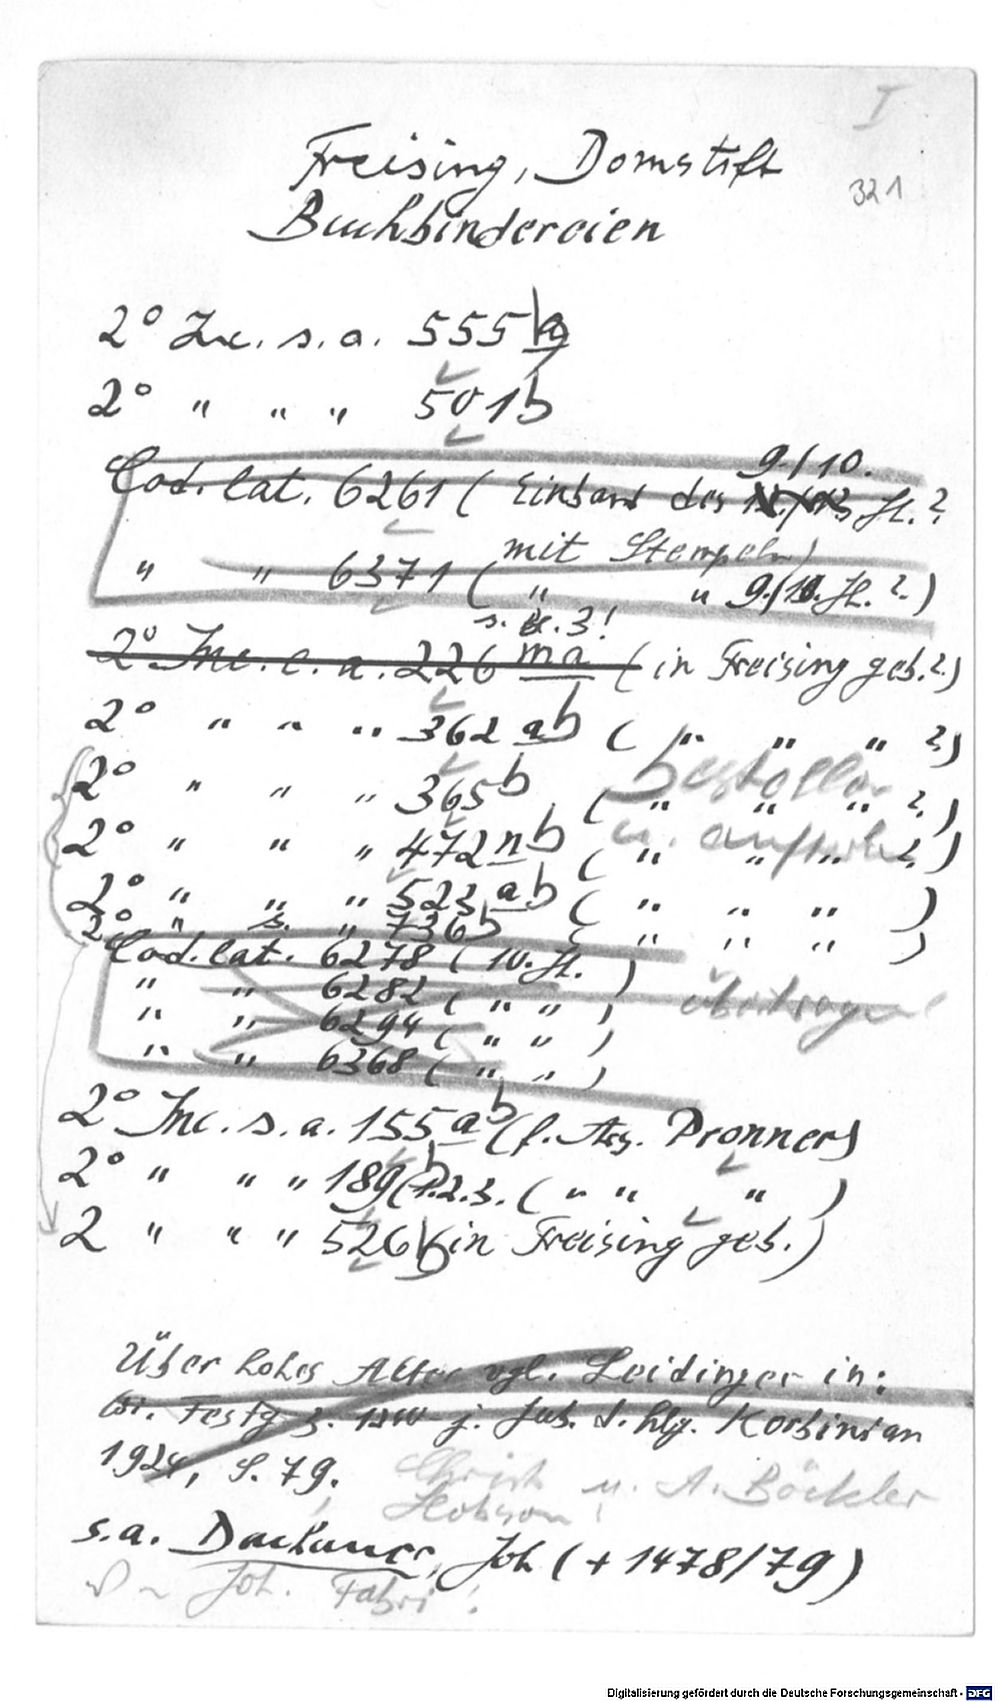 I
Freising, Domstift
321
Buchbindereien
2° Inc. s. a. 555 b
2° " " " 501b
Cod. lat. 6261 ( Einband des 9./10. Jh. ?
mit Stempeln)
" " 6371 ( " " 9./10. Jh. ?)
2° Inc. c. a. 226 ma (in Freising geb.?)
2° " " " 362 ab ( " " " ?)
2° " " " 365b ( " " " ?)
bestellen
2° " " " 472 nb ( " " " ?)
2° " " " 523 ab ( " " " )
2° " s. " 736b ( " " " )
Cod. lat. 6278 (10. Jh. )
" " 6282 ( " " )
übertragen
" " 6294 ( " " )
" " 6368 ( " " )
2° Inc. s. a. 155 ab (f. Aeg. Pronner)
2° " " " 189b 1.2.3. ( " " " )
2 " " " 526b (in Freising geb.)
Über hohes Alter vgl. Leidinger in:
Festg. z. j. Jub. d. hlg. Korbinian
1924, S. 79.
Christ u. A. Böckler
Hobson !
s. a. Dachauer, Joh (+ 1478/79)
Joh. Fabri !
Digitalisierung gefördert durch die Deutsche Forschungsgemeinschaft - DFG